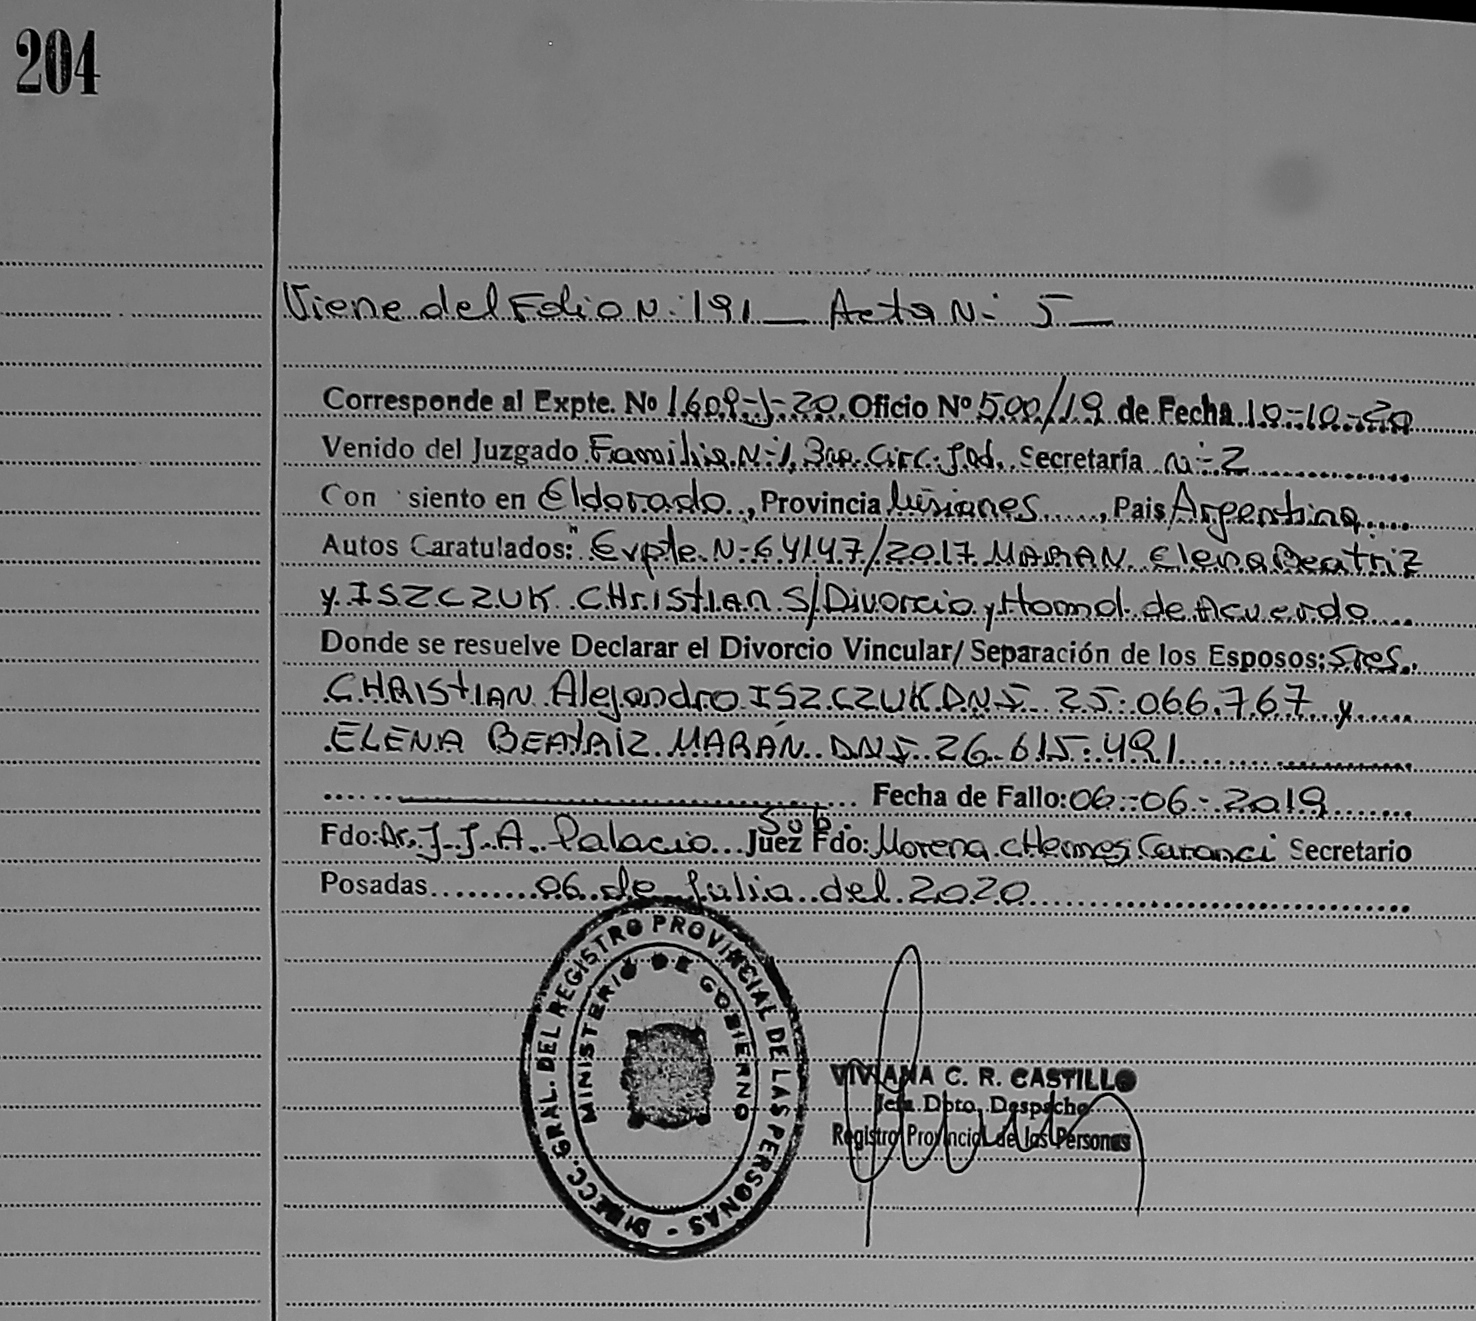 204
Viene del Folio N: 191 — Acta N: 5 —
Corresponde al Expte. No 1609-J-20 Oficio Nº 500/19 de Fecha 10-10-20
Venido del Juzgado Familia N:1, 3ra. Circ. Jud. Secretaría N:2
Con siento en Eldorado, Provincia Misiones, Pais Argentina
Autos Caratulados: "Expte. N: 64147/2017 MARAN Elena Beatriz
y ISZCZUK CHristian S/Divorcio y Homol. de Acuerdo
Donde se resuelve Declarar el Divorcio Vincular/ Separación de los Esposos: Sres.
CHRIStIAN Alejandro ISZCZUK DNI 25.066.767 y
ELENA BEAtRIZ MARÁN DNI 26.615.491
Fecha de Fallo: 06-06-2019
Sub.
Fdo: Dr. J.J.A. Palacio Juez Fdo: Morena Hermes Caranci Secretario
Posadas 06 de Julio del 2020
DIRECC. GRAL. DEL REGISTRO PROVINCIAL DE LAS PERSONAS -
MINISTERIO DE GOBIERNO
VIVIANA C. R. CASTILLO
Jefa Dpto. Despacho
Registro Provincial de las Personas